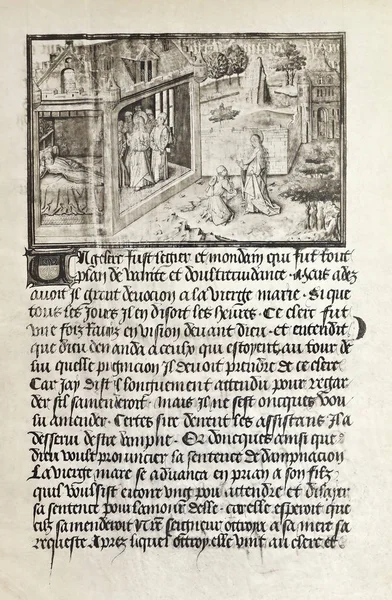 Ung clerc fust legier et mondain qui fut tout
plain de vanite et doultrecuidance. Mais adez
auoit il grant deuocion a la vierge marie. Si que
tous les jours il en disoit les heures. Ce clerc fut
vne fois rauiz en vision deuant dieu. et entendit
que dieu demanda a ceulx qui estoyent au tour de
lui quelle pugnicion il deuoit prendre de ce clerc
Car jay dist il longuement attendu pour regar
der sil samenderoit. mais il ne sest oncques vou
lu amender. Certes sire dirent les assistans Il a
desserui destre dampne. Or doncques ainsi que
dieu voult pronuncier la sentence de dampnacion
La vierge marie se aduanca en priant a son filz
quil voulsist encore vng pou attendre et dilaier
sa sentence pour lamour delle. car elle esperoit que
cilz samenderoit nostre seigneur ottroya a sa mere sa
requeste Apres lequel ottroy elle vint au clerc et